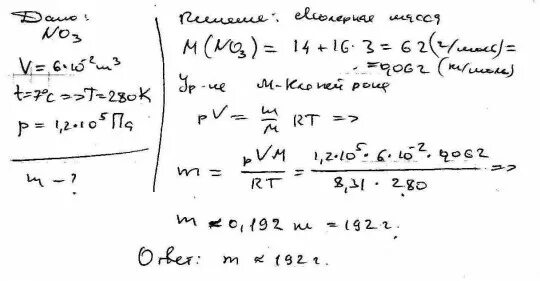 Дано:
NO₃
V = 6·10⁻² м³
t = 7°C => T = 280K
p = 1,2·10⁵ Па
m - ?
Решение: Молярная масса
M(NO₃) = 14 + 16·3 = 62 (г/моль) =
= 0,062 (кг/моль)
Ур-ие М-Клапейрона
pV = m/M RT =>
m = pVM/RT = 1,2·10⁵·6·10⁻²·0,062/8,31·280 =>
m ≈ 0,192 кг = 192 г.
Ответ: m ≈ 192 г.